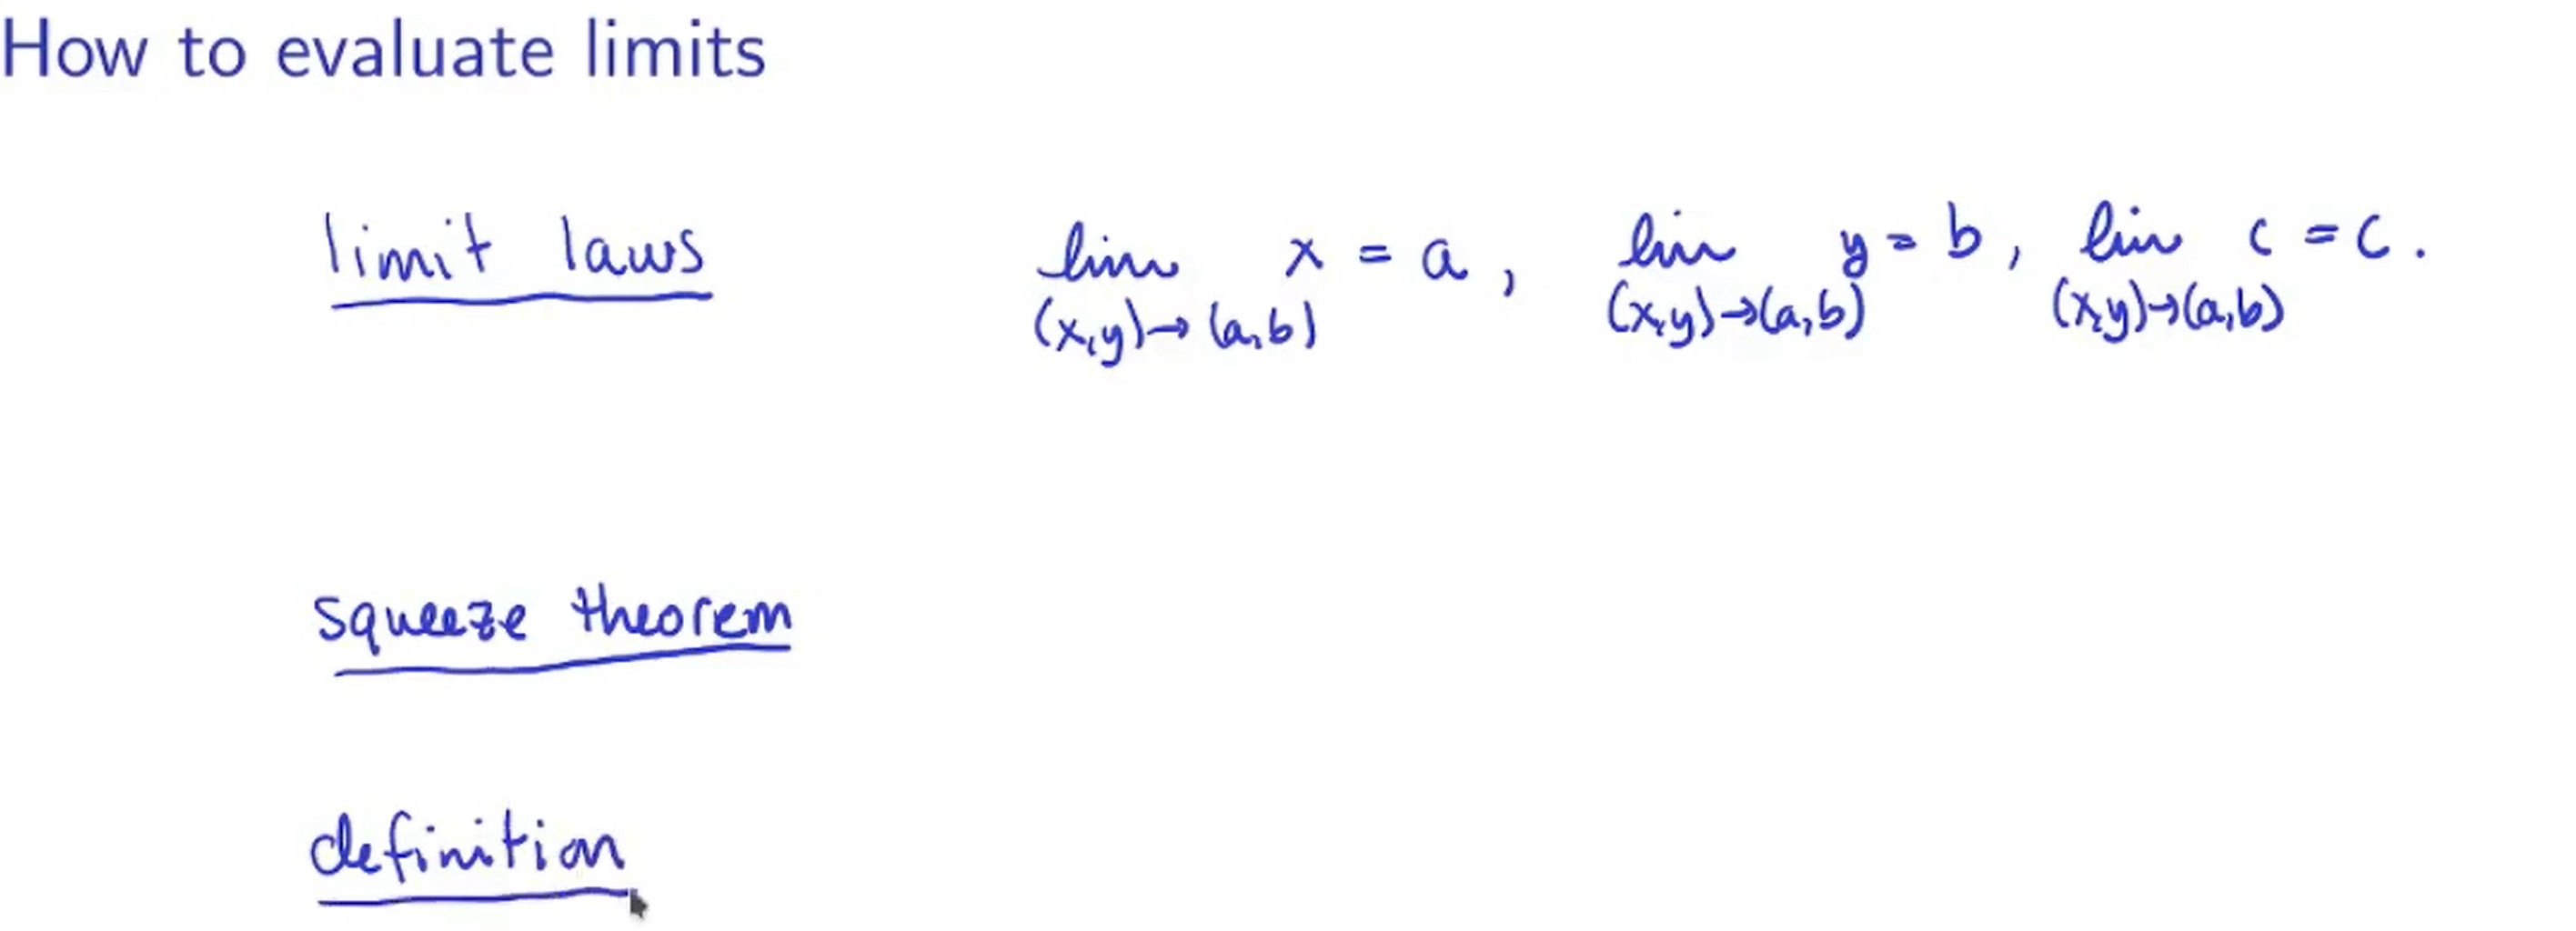 How to evaluate limits
limit laws lim x = a , lim y = b , lim c = c .
(x,y)→(a,b) (x,y)→(a,b) (x,y)→(a,b)
squeeze theorem
definition